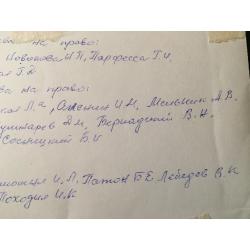 на право:
Новикова Н П, Парфесса Т. И.
на право:
Л. А, Оленин И. Н, Мельник А. В.
Д. М, Бернадский В. Н.
Сосницкий В. И
И. Л. Патон Б Е Лебедев В. К
Походня И. К